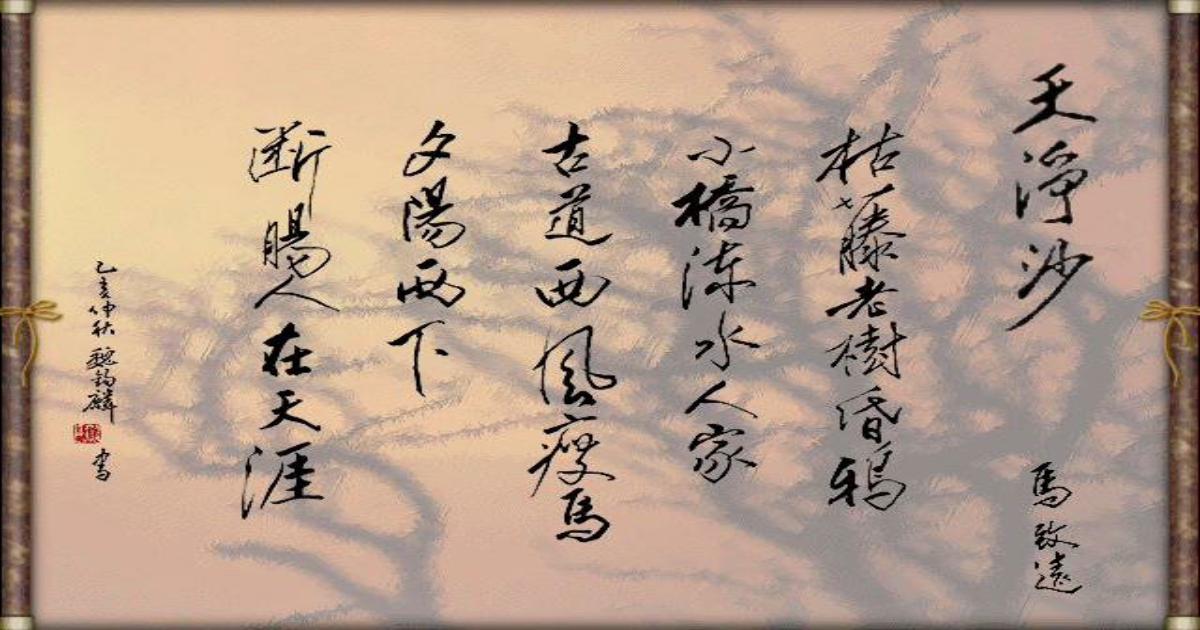 天淨沙
馬致遠
枯藤老樹昏鴉
小橋流水人家
古道西風瘦馬
夕陽西下
斷腸人在天涯
乙亥仲秋魏鈞麟書